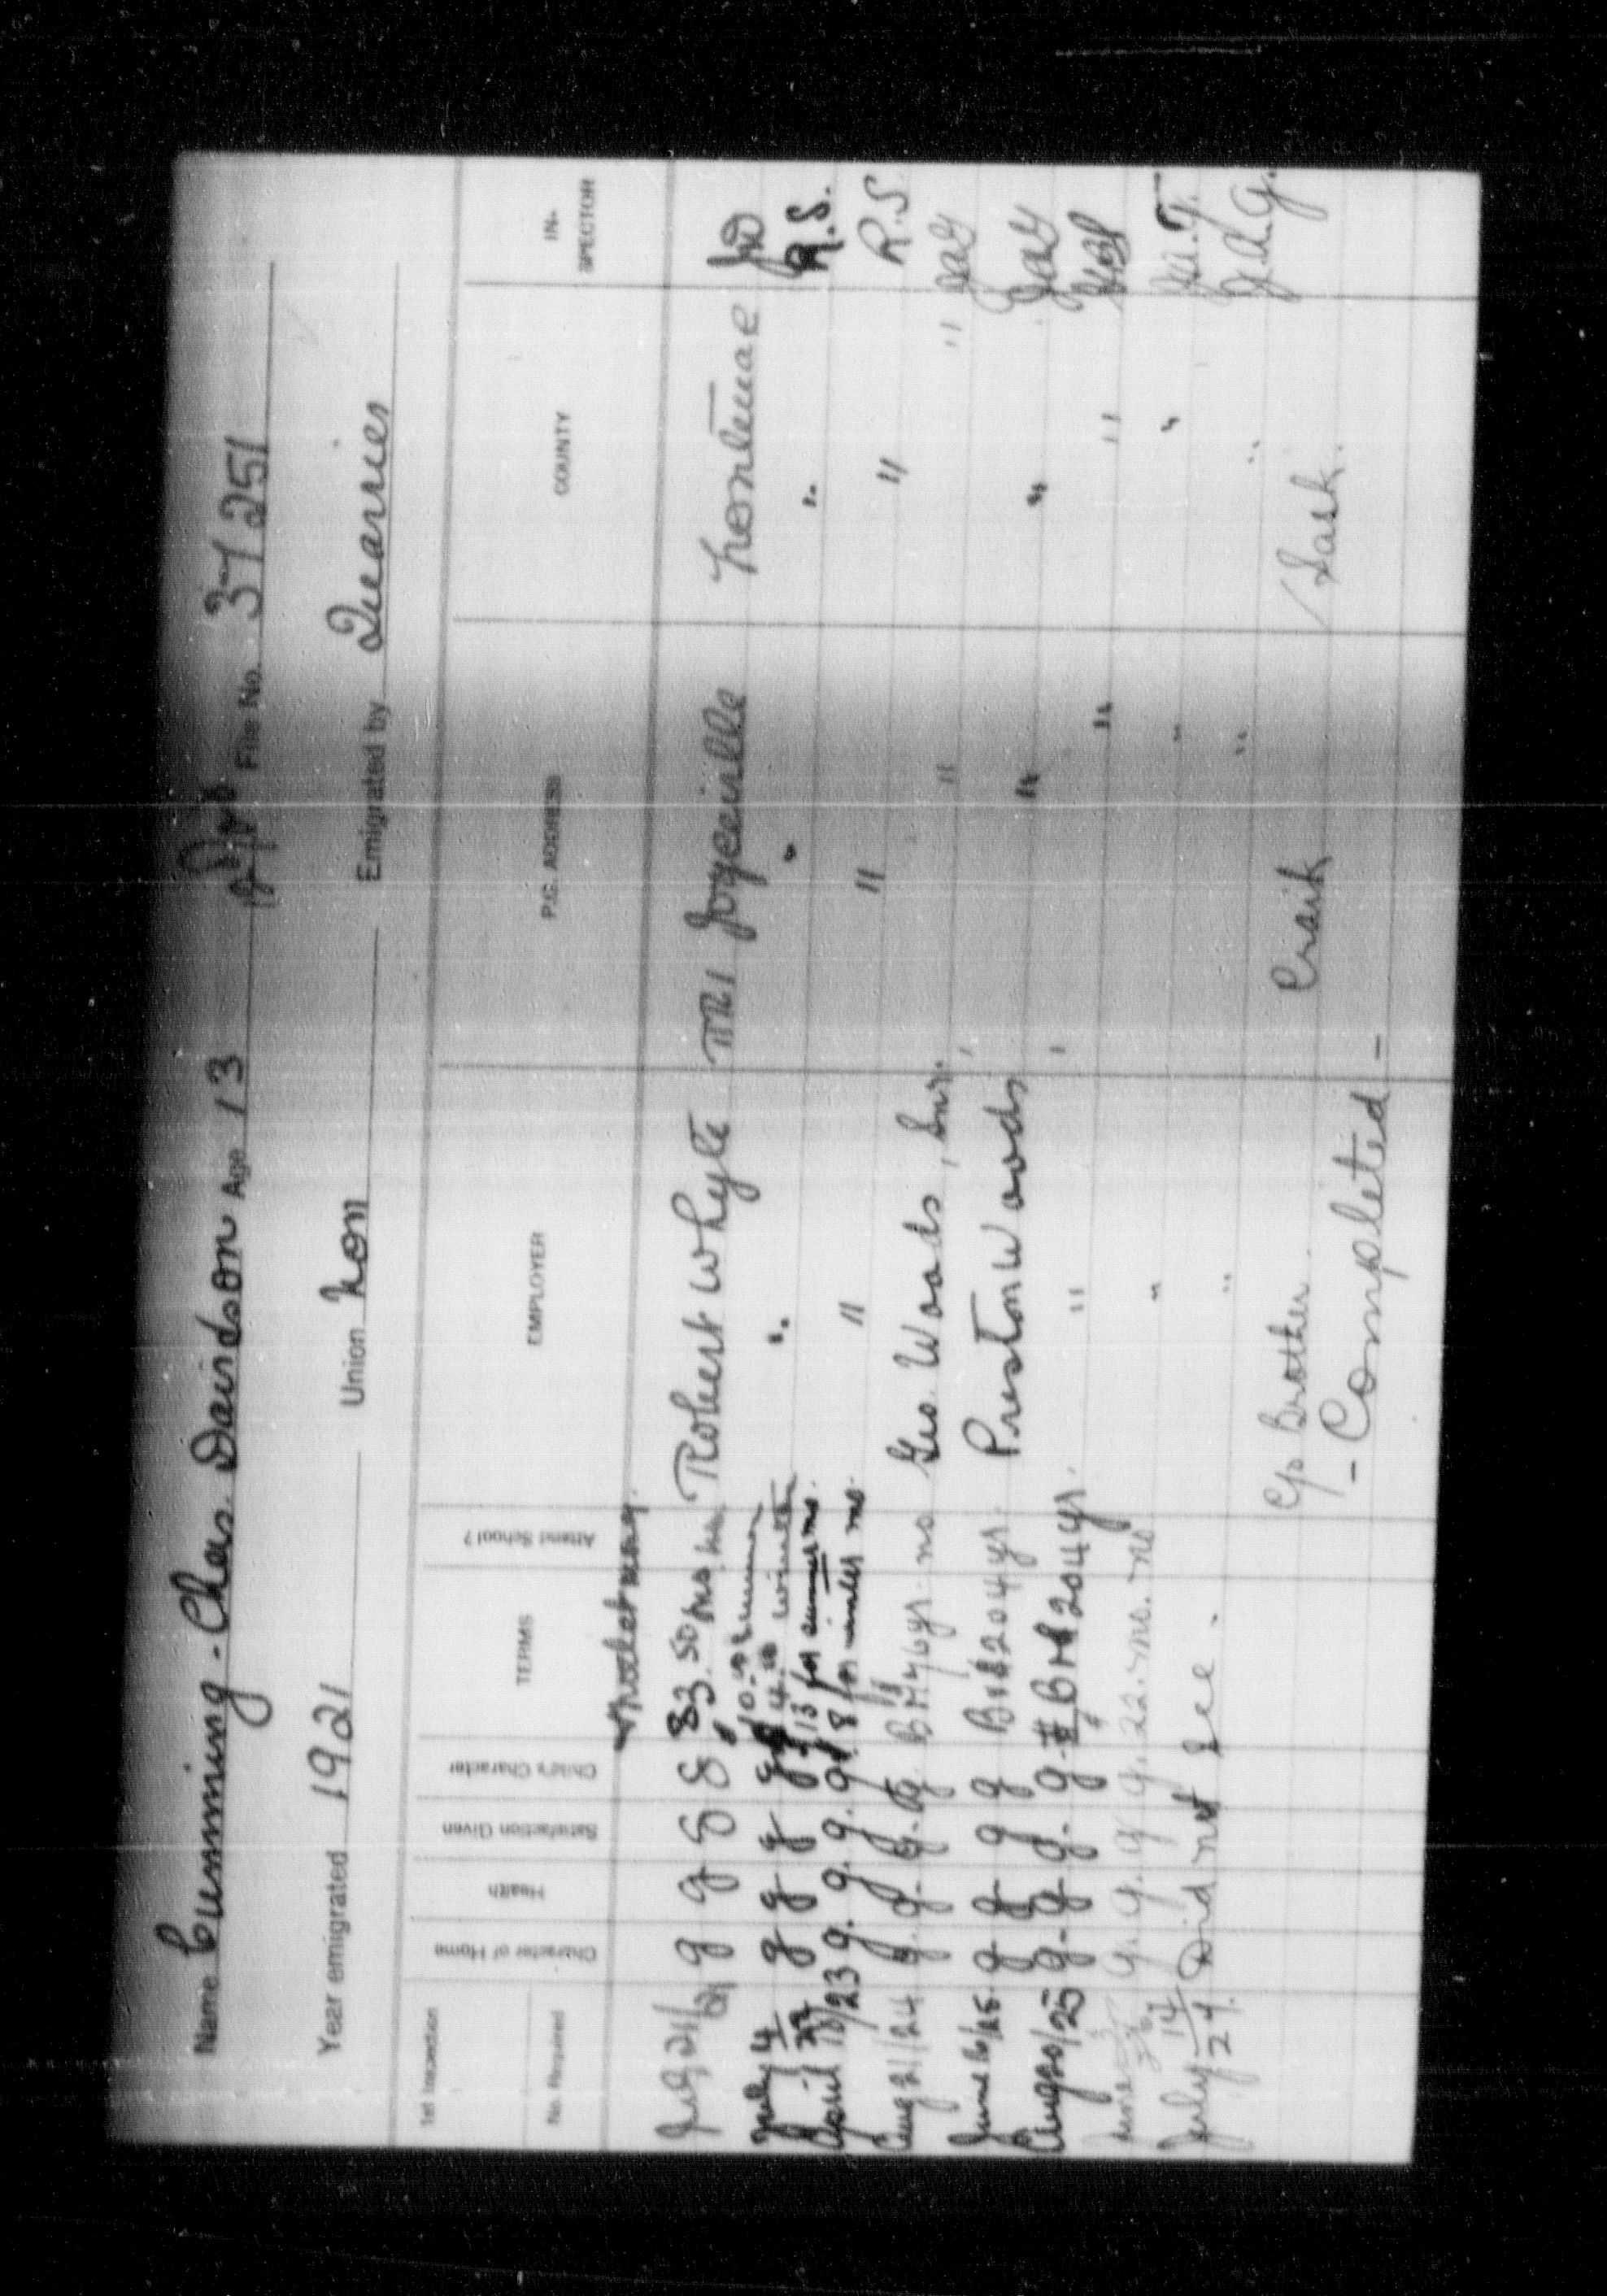 Name Cumming - Chas. Davidson Age 13 File No. 37251
Year emigrated 1921 Union non Emigrated by Quarrier
1st Inspection
No. Required
Character of Home
Health
Satisfaction Given
Child's Character
TERMS
Attend School?
EMPLOYER
P.O. ADDRESS
COUNTY
IN-
SPECTOR
July 21/21 g g G G 3.50 mo no Robert Whyte RR1 Joyceville Frontenac
July 4/22 g g g 10.00 summer " " " R.S.
4.00 winter
April 18/23 g. g. g. g. 13 for summer mo. " " " R.S
8 for winter mo.
Aug 21/24 g. g. g. g. yr. no Geo. Woods, Snr. " "
June 6/25 g g g g 204 yr. Preston Woods " " JAG
Aug 20/25 g. g. g. g. 204 yr. " " "
June g. g. g. g. 22. mo. no " " "
July 14/27. Did not see. " " " J.A.G.
c/o Brother. Craik Sask.
- Completed -